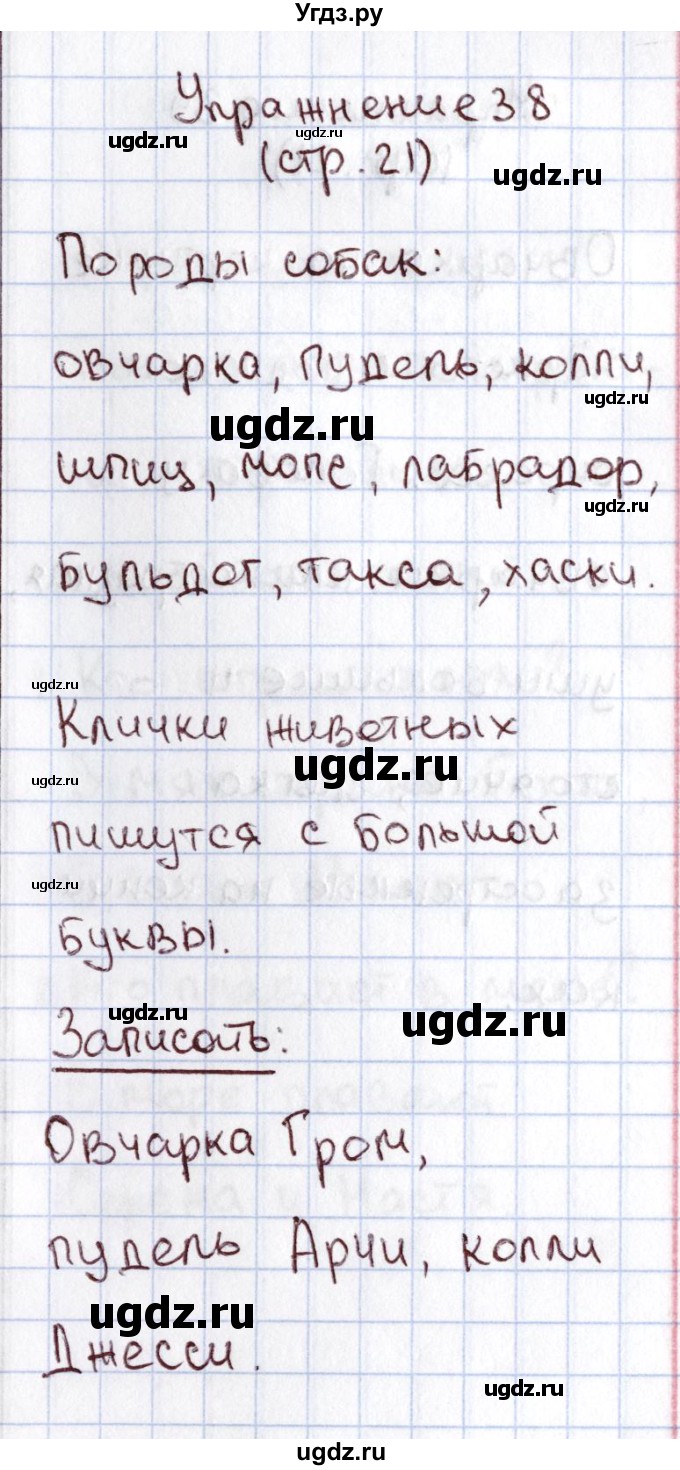 Угдз.ру
Упражнение 38
ugdz.ru ugdz.ru
(стр. 21)
ugdz.ru
Породы собак:
овчарка, пудель, колли,
ugdz.ru
ugdz.ru
шпиц, мопс, лабрадор,
ugdz.ru
бульдог, такса, хаски.
ugdz.ru
Клички животных
ugdz.ru
ugdz.ru
пишутся с большой
ugdz.ru
буквы.
ugdz.ru
ugdz.ru
Записать:
Овчарка Гром,
пудель Арчи, колли
ugdz.ru
Джесси.
ugdz.ru
ugdz.ru